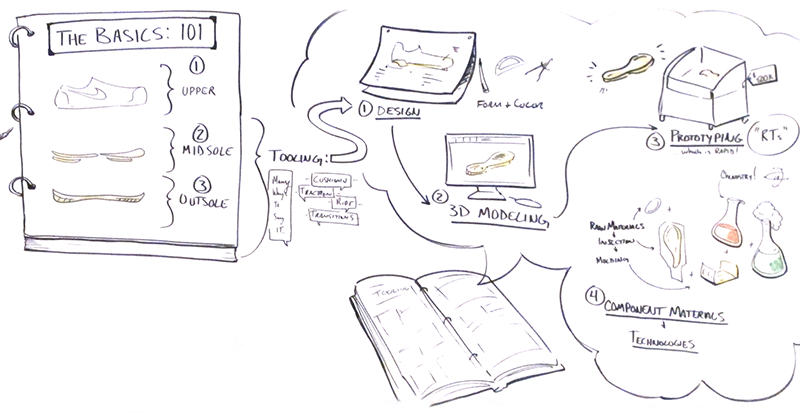 THE BASICS: 101
1
UPPER
2
MIDSOLE
3
OUTSOLE
TOOLING:
Many
Ways
To
Say
IT.
CUSHION
TRACTION
RIDE
TRANSITIONS
1 DESIGN
FORM + COLOR
2
3D MODELING
3 PROTOTYPING
WHICH IS RAPID!
"RTs"
CHEMISTRY!
RAW MATERIALS
+
INJECTION
+
MOLDING
4 COMPONENT MATERIALS
+
TECHNOLOGIES
TOOLING